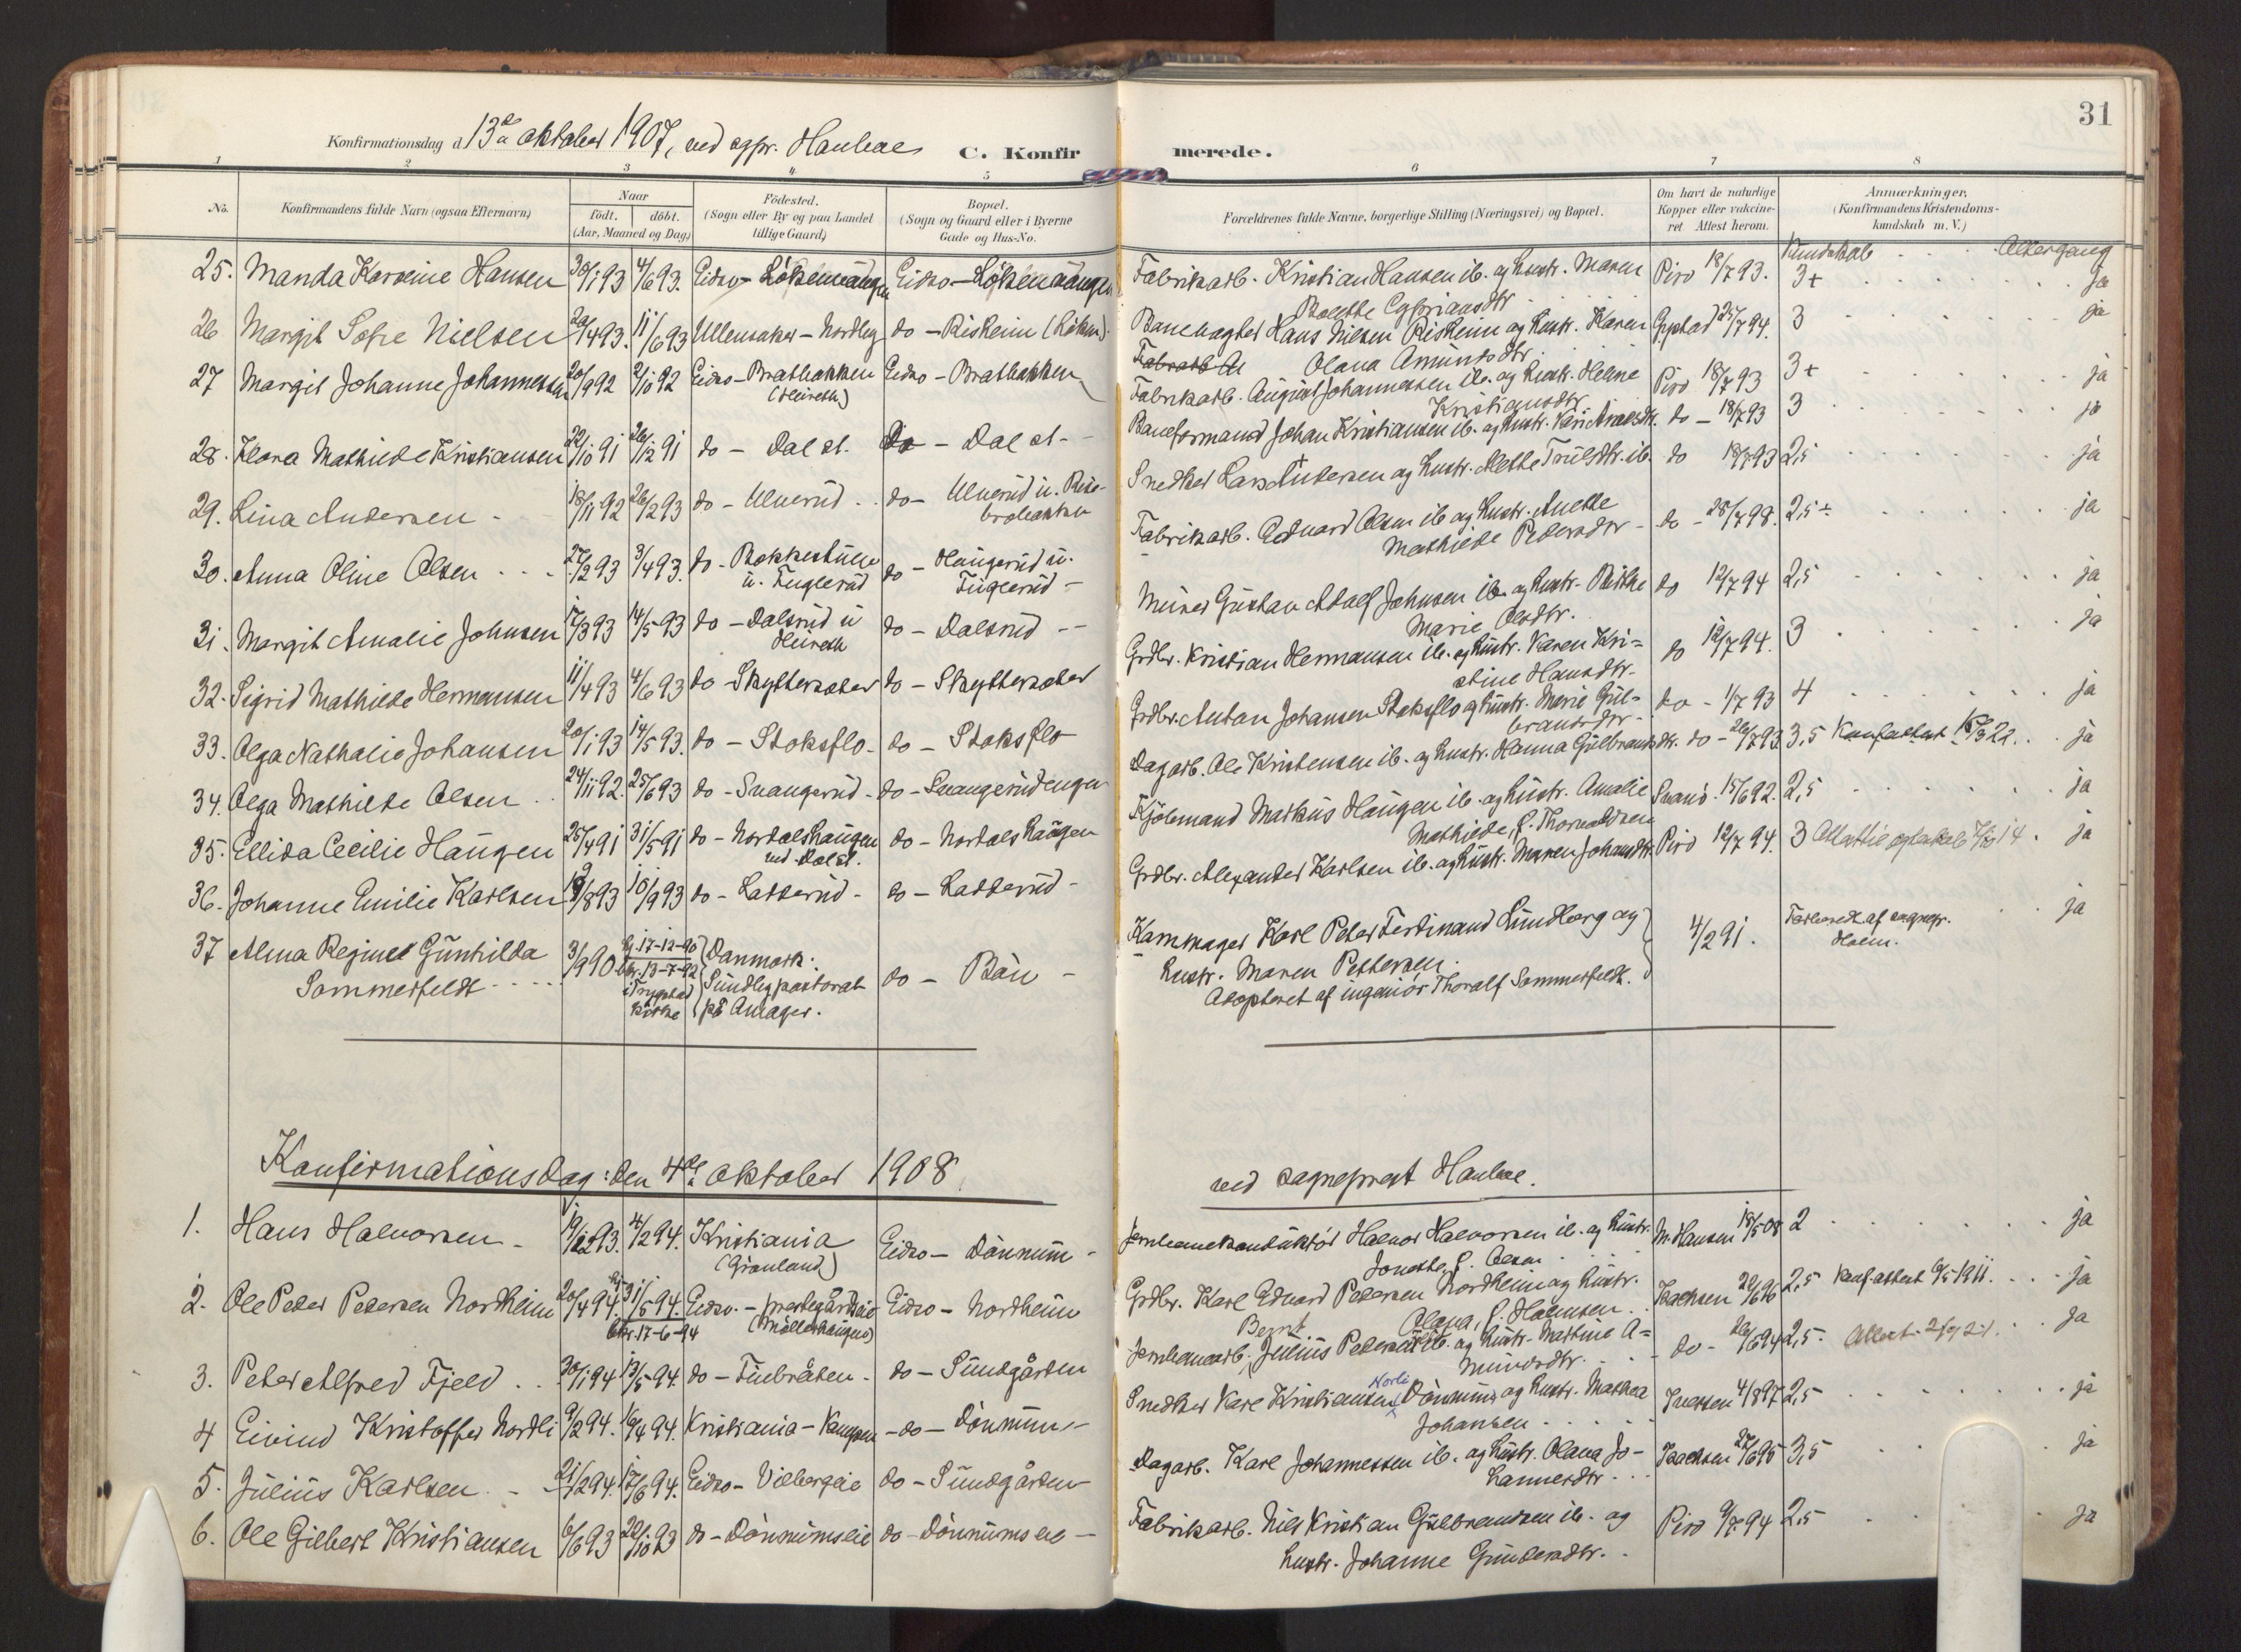 31
Konfirmationsdag d. 13de oktober 1907, ved sgpr. Hanche
C. Konfirmerede.
1 2 3 4 5 6 7 8
No.
Konfirmandens fulde Navn (ogsaa Efternavn)
Naar
födt. döbt.
(Aar, Maaned og Dag)
Födested.
(Sogn eller By og paa Landet
tillige Gaard)
Bopæl.
(Sogn og Gaard eller i Byerne
Gade og Hus-No.
Forældrenes fulde Navne, borgerlige Stilling (Næringsvei) og Bopæl.
Om havt de naturlige
Kopper eller vakcine-
ret Attest herom.
Anmærkninger.
(Konfirmandens Kristendoms-
kundskab m. V.)
Kundskab Altergang
25. Manda Karoline Hansen 30/1 93 4/6 93. Eidsv - Løkenvangen Eidsv - Løkenvangen Fabrikarb. Kristian Hansen ib. og hustr. Maren Piro 18/7 93. 3+ ja
Bolette Cypriansdtr
26 Margit Sofie Nielsen 29/4 93. 11/6 93 Ullensaker - Nordby do - Risheim (Løken) Banevogter Hans Nielsen Risheim og hustr. Karen 25/7 94. 3 ja
Olana Amundsdtr.
27 Margit Johanne Johannessen 20/9 92 2/10 92 Eidsv - Bratbakken Eidsv - Bratbakken Fabrikarb. August Johannessen ib. og hustr. Helene Piro 18/7 93 3+ ja
(Heireth) Kristiansdtr
28. Klara Mathilde Kristiansen 22/10 91 26/12 91 do - Dal st. Do - Dal st. Baneformand Johan Kristiansen ib. og hustr. Kari do - 18/7 93 3 ja
29. Lina Andersen 18/11 92 26/2 93 do - Ulverud do - Ulverud u. Rise-
brobakken Snedker Lars Andersen og hustr. Mette Trulsdtr. ib. do 18/7 93 2,5 ja
30. Anna Oline Olsen 27/2 93 3/4 93. do - Bokkestuen
u. Fuglerud do - Haugerud u.
Fuglerud Fabrikarb. Edvard Olsen ib og hustr. Anette
Mathilde Pedersdtr do - 28/7 98. 2,5+ ja
31. Margit Amalie Johnsen 17/3 93 14/5 93 do - Dalsrud u
Heireth do - Dalsrud Murer Gustav Adolf Johnsen ib. og hustr.
Marie Olsdtr. do 12/7 94 2,5 ja
32. Sigrid Mathilde Hermansen 11/4 93 4/6 93 do - Skyttersæter do - Skyttersæter Grdbr. Kristian Hermansen ib. og hustr. Karen Kri=
stine Hansdtr. do 12/7 94. 3 ja
33. Olga Nathalie Johansen 20/1 93 14/5 93. do - Stoksflo do - Stoksflo Grdbr. Anton Johansen Stoksflo og hustr. Marie Gul-
brandsdtr do - 1/7 93 4 ja
34. Olga Mathilde Olsen 24/11 92. 25/6 93 do - Svangerud do - Svangerudengen Dagarb. Ole Kristensen ib. og hustr. Hanna Gulbrandsdtr. do - 26/7 93. 3,5 Konf.attest 22. ja
35. Ellida Cecilie Haugen 25/4 91 31/5 91 do - Nordalshaugen
ved Dal st. do - Nordalshaugen Kjølemand Markus Haugen ib. og hustr. Amalie
Mathilde, f. Thorvaldsen 15/6 92. 2,5 ja
36. Johanne Emilie Karlsen 19/8 93 10/9 93 do - Ladderud do - Ladderud Grdbr. Alexander Karlsen ib. og hustr. Maren Johansdtr. Piro 12/7 94. 3 14. ja
37 Alma Regine Gunhilda
Sommerfeldt 3/9 90 17-12-90
bkr. 13-7-92
i Trygstad
kirke Danmark:
Sundby pastorat
på Amager. do - Bøn Kammager Karl Peter Ferdinand Lundberg og
hustr. Maren Pettersen.
Adopteret af ingeniør Thoralf Sommerfeldt. 4/2 91. Forberedt af sognepr.
Holm. ja
Konfirmationsdag: den 4de oktober 1908 ved sogneprest Hanche.
1. Hans Halvorsen 19/12 93. 4/2 94. Kristiania
(Grønland) Eidsv - Dønnum Jernbanekonduktør Halvor Halvorsen ib. og hustr.
Jonette, f. Olsen M. Hansen 18/5 08 2 ja
2. Ole Peder Pedersen Nordheim 20/4 94. 31/5 94.
bkr. 17-6-94 Eidsv. - prestegårdseie
(Møllerhaugen) Eidsv - Nordheim Grdbr. Karl Edvard Pedersen Nordheim og hustr.
Olava, f. Holmsen Isachsen 22/6 96 2,5 Konf.attest 1911. ja
3. Peter Alfred Fjeld 30/1 94 13/5 94. do - Finbråten do - Sundgården Jernbanearb. Bernt Julius Pedersen ib. og hustr. Martine A=
mundsdtr. do - 26/6 94 2,5. Attest 21. ja
4 Eivind Kristoffer Nordli 9/2 94. 16/4 94. Kristiania - Kampen do - Dønnum Snedker Karl Kristiansen Norli Dønnum og hustr. Mathea
Johansen Iversen 4/8 97 2,5 ja
5. Julius Karlsen 21/2 94. 17/6 94. Eidsv - Vilbergeie do - Sundgården Dagarb. Karl Johannessen ib. og hustr. Olava Jo-
hannesdtr Isachsen 27/6 95 3,5 ja
6. Ole Gilbert Kristiansen 6/6 93 22/10 93 do - Dønnumseie do - Dønnumseie Fabrikarb. Nils Kristian Gulbrandsen ib. og
hustr. Johanne Gundersdtr. Piro 9/7 94 2,5 ja